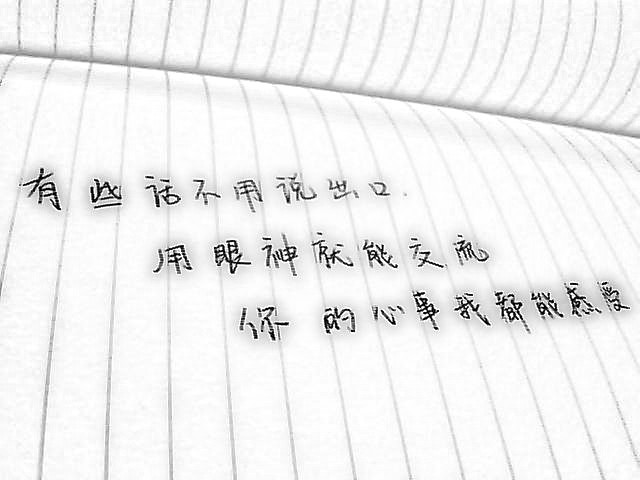 有些话不用说出口.
用眼神就能交流
你的心事我都能感受